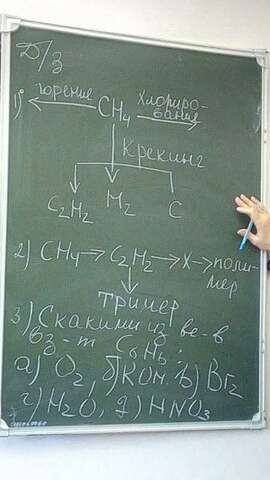 Д/З
1) горение CH₄ Хлориро-
вание
Крекинг
C₂H₂ H₂ C
2) CH₄ → C₂H₂ → X → поли-
мер
тример
3) Скакими из ве-в
вз-т C₆H₆:
а) O₂, б) KOH в) Br₂
г) H₂O, д) HNO₃